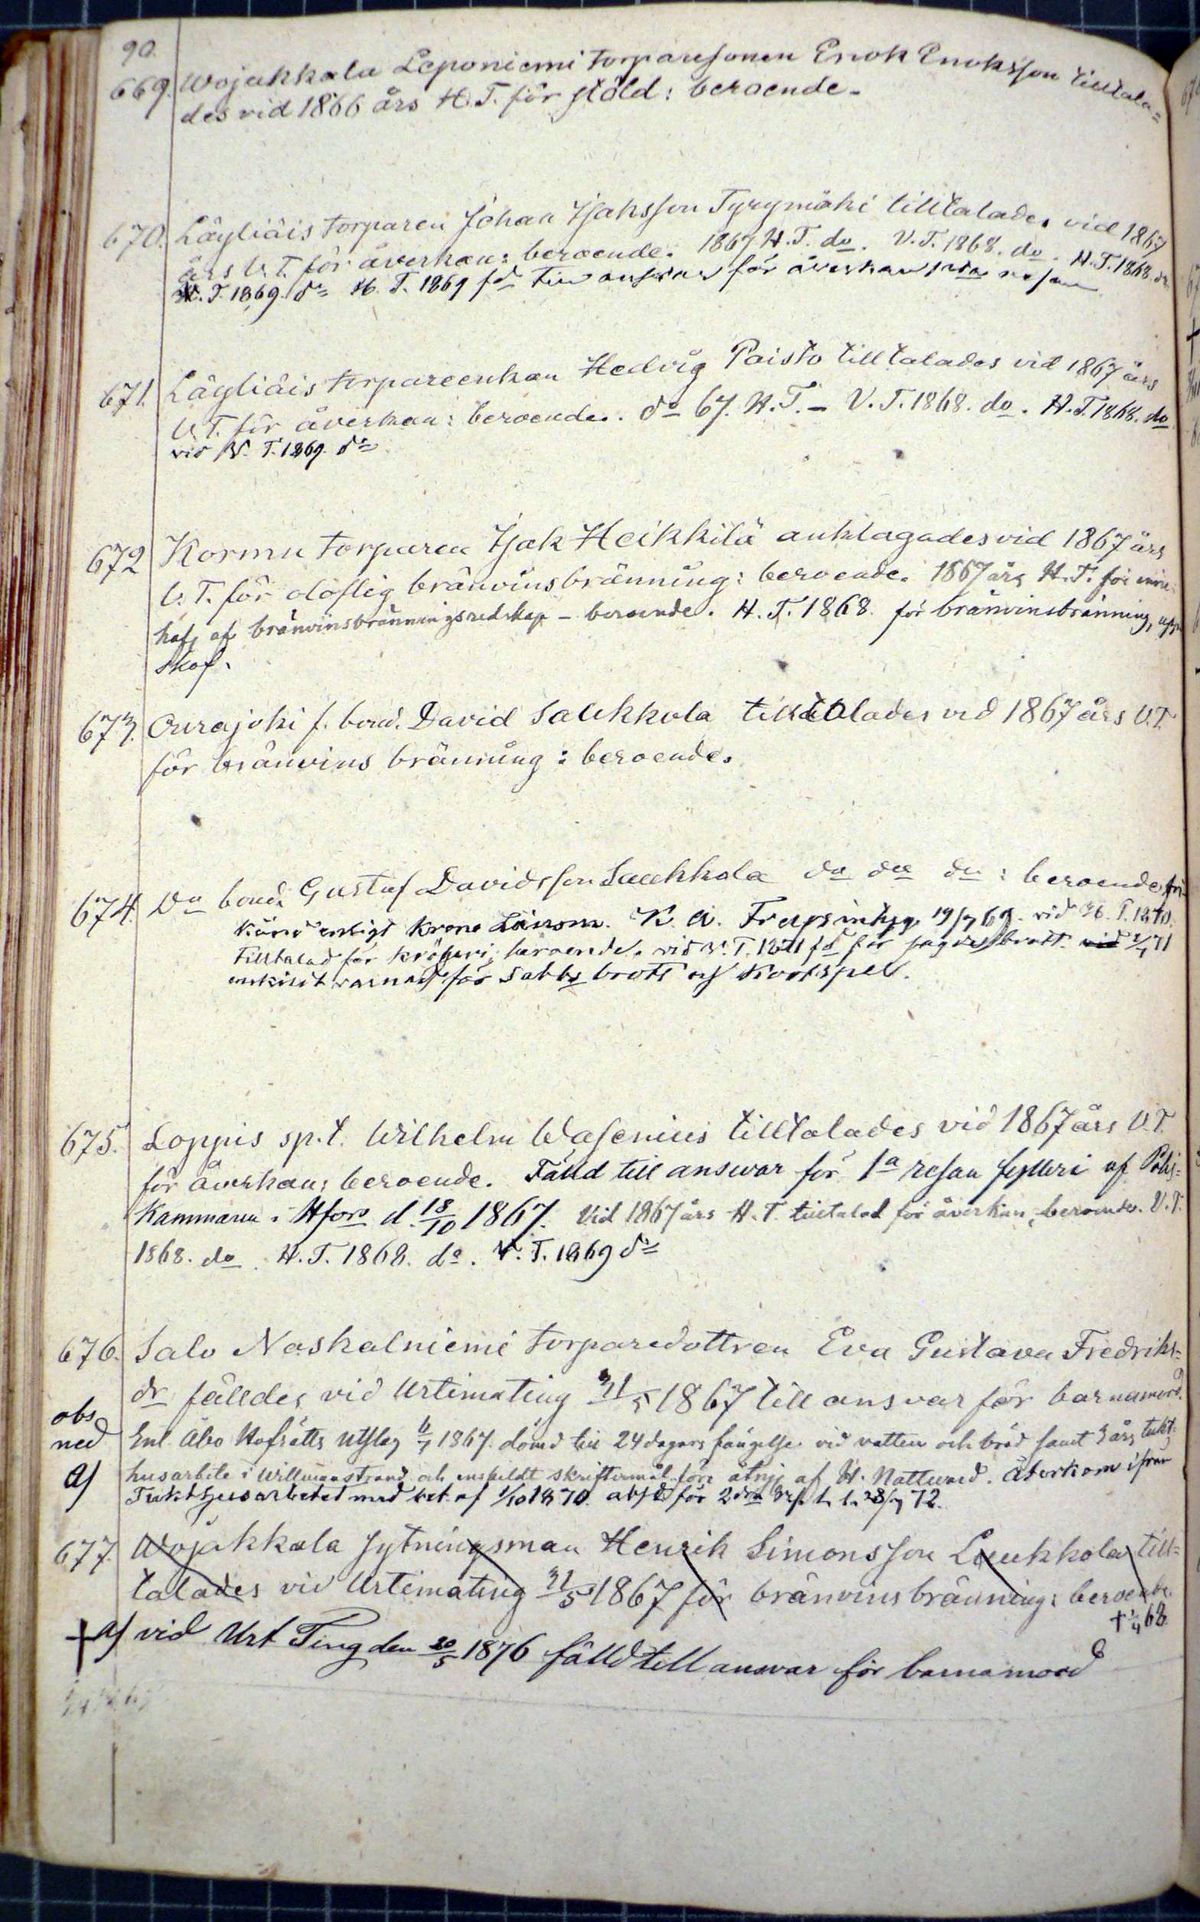 90.
669. Wojakkala Leponiemi torparesonen Enok Enoksson tilltala=
des vid 1866 års H.T. för stöld: beroende.
670. Läyliäis torparen Johan Isaksson Tyrymäki tilltalades vid 1867
års V.T. för åverkan: beroende. 1867 H.T. do. V.T. 1868. do. H.T. 1868. do
V.T. 1869. do H.T. 1869 för åverkan
671. Läyliäis torpareenkan Hedvig Paisto tilltalades vid 1867 års
V.T. för åverkan: beroende. do 67. H.T. – V.T. 1868. do. H.T. 1868. do
vid V.T. 1869. do
672 Kormu torparen Isak Heikkilä anklagades vid 1867 års
V.T. för oloflig bränvinsbränning: beroende. 1867 års H.T. för inne-
haf af bränvinsbränningsredskap – beroende. H.T. 1868. för bränvinsbränning,
skof.
673. Ourajoki f. bond. David Saukkola tilltalades vid 1867 års V.T.
för bränvins bränning: beroende.
674. Do bond. Gustaf Davidsson Saukkola do do do: beroende, fri
känd enligt Krono Länsm. K. A. 19/7 69. vid H.T. 1870.
Tilltalad för krögeri, beroende. vid V.T. 1871 för brott. vid /71
enskildt varnad för Sabbs brott och Kortspel.
675. Loppis sp.t. Wilhelm Wasenius tilltalades vid 1867 års V.T.
för åverkan: beroende. Fälld till answar för 1a resan fylleri af Polis=
Kammaren i Hfors d. 18/10 1867. Vid 1867 års H.T. tilltalad för åverkan, beroende. V.T.
1868. do. H.T. 1868. do. V.T. 1869 do
676. Salo Naskalniemi torparedottren Eva Gustava Fredriks=
dr fälldes vid Urtimating 31/5 1867 till ansvar för barnamord.
obs
ned Enl. Åbo Hofrätts Utslag 6/7 1867. dömd till 24 dagars fängelse vid vatten och bröd samt 3 års tukt=
a) husarbete i Willmanstrand och enskeldt skriftermål före åtnj. af H. Nattward. Återkom ifrån
Tukthusarbetet med bet. af 1/10 1870. för 2dra 28/7 72.
677. Wojakkala hytningsman Henrik Simonsson Laukkola till=
talades vid Urtimating 31/5 1867 för bränvinsbränning: beroende.
† 68
† a) vid Urt. Ting den 20/5 1876 fälld till answar för barnamord